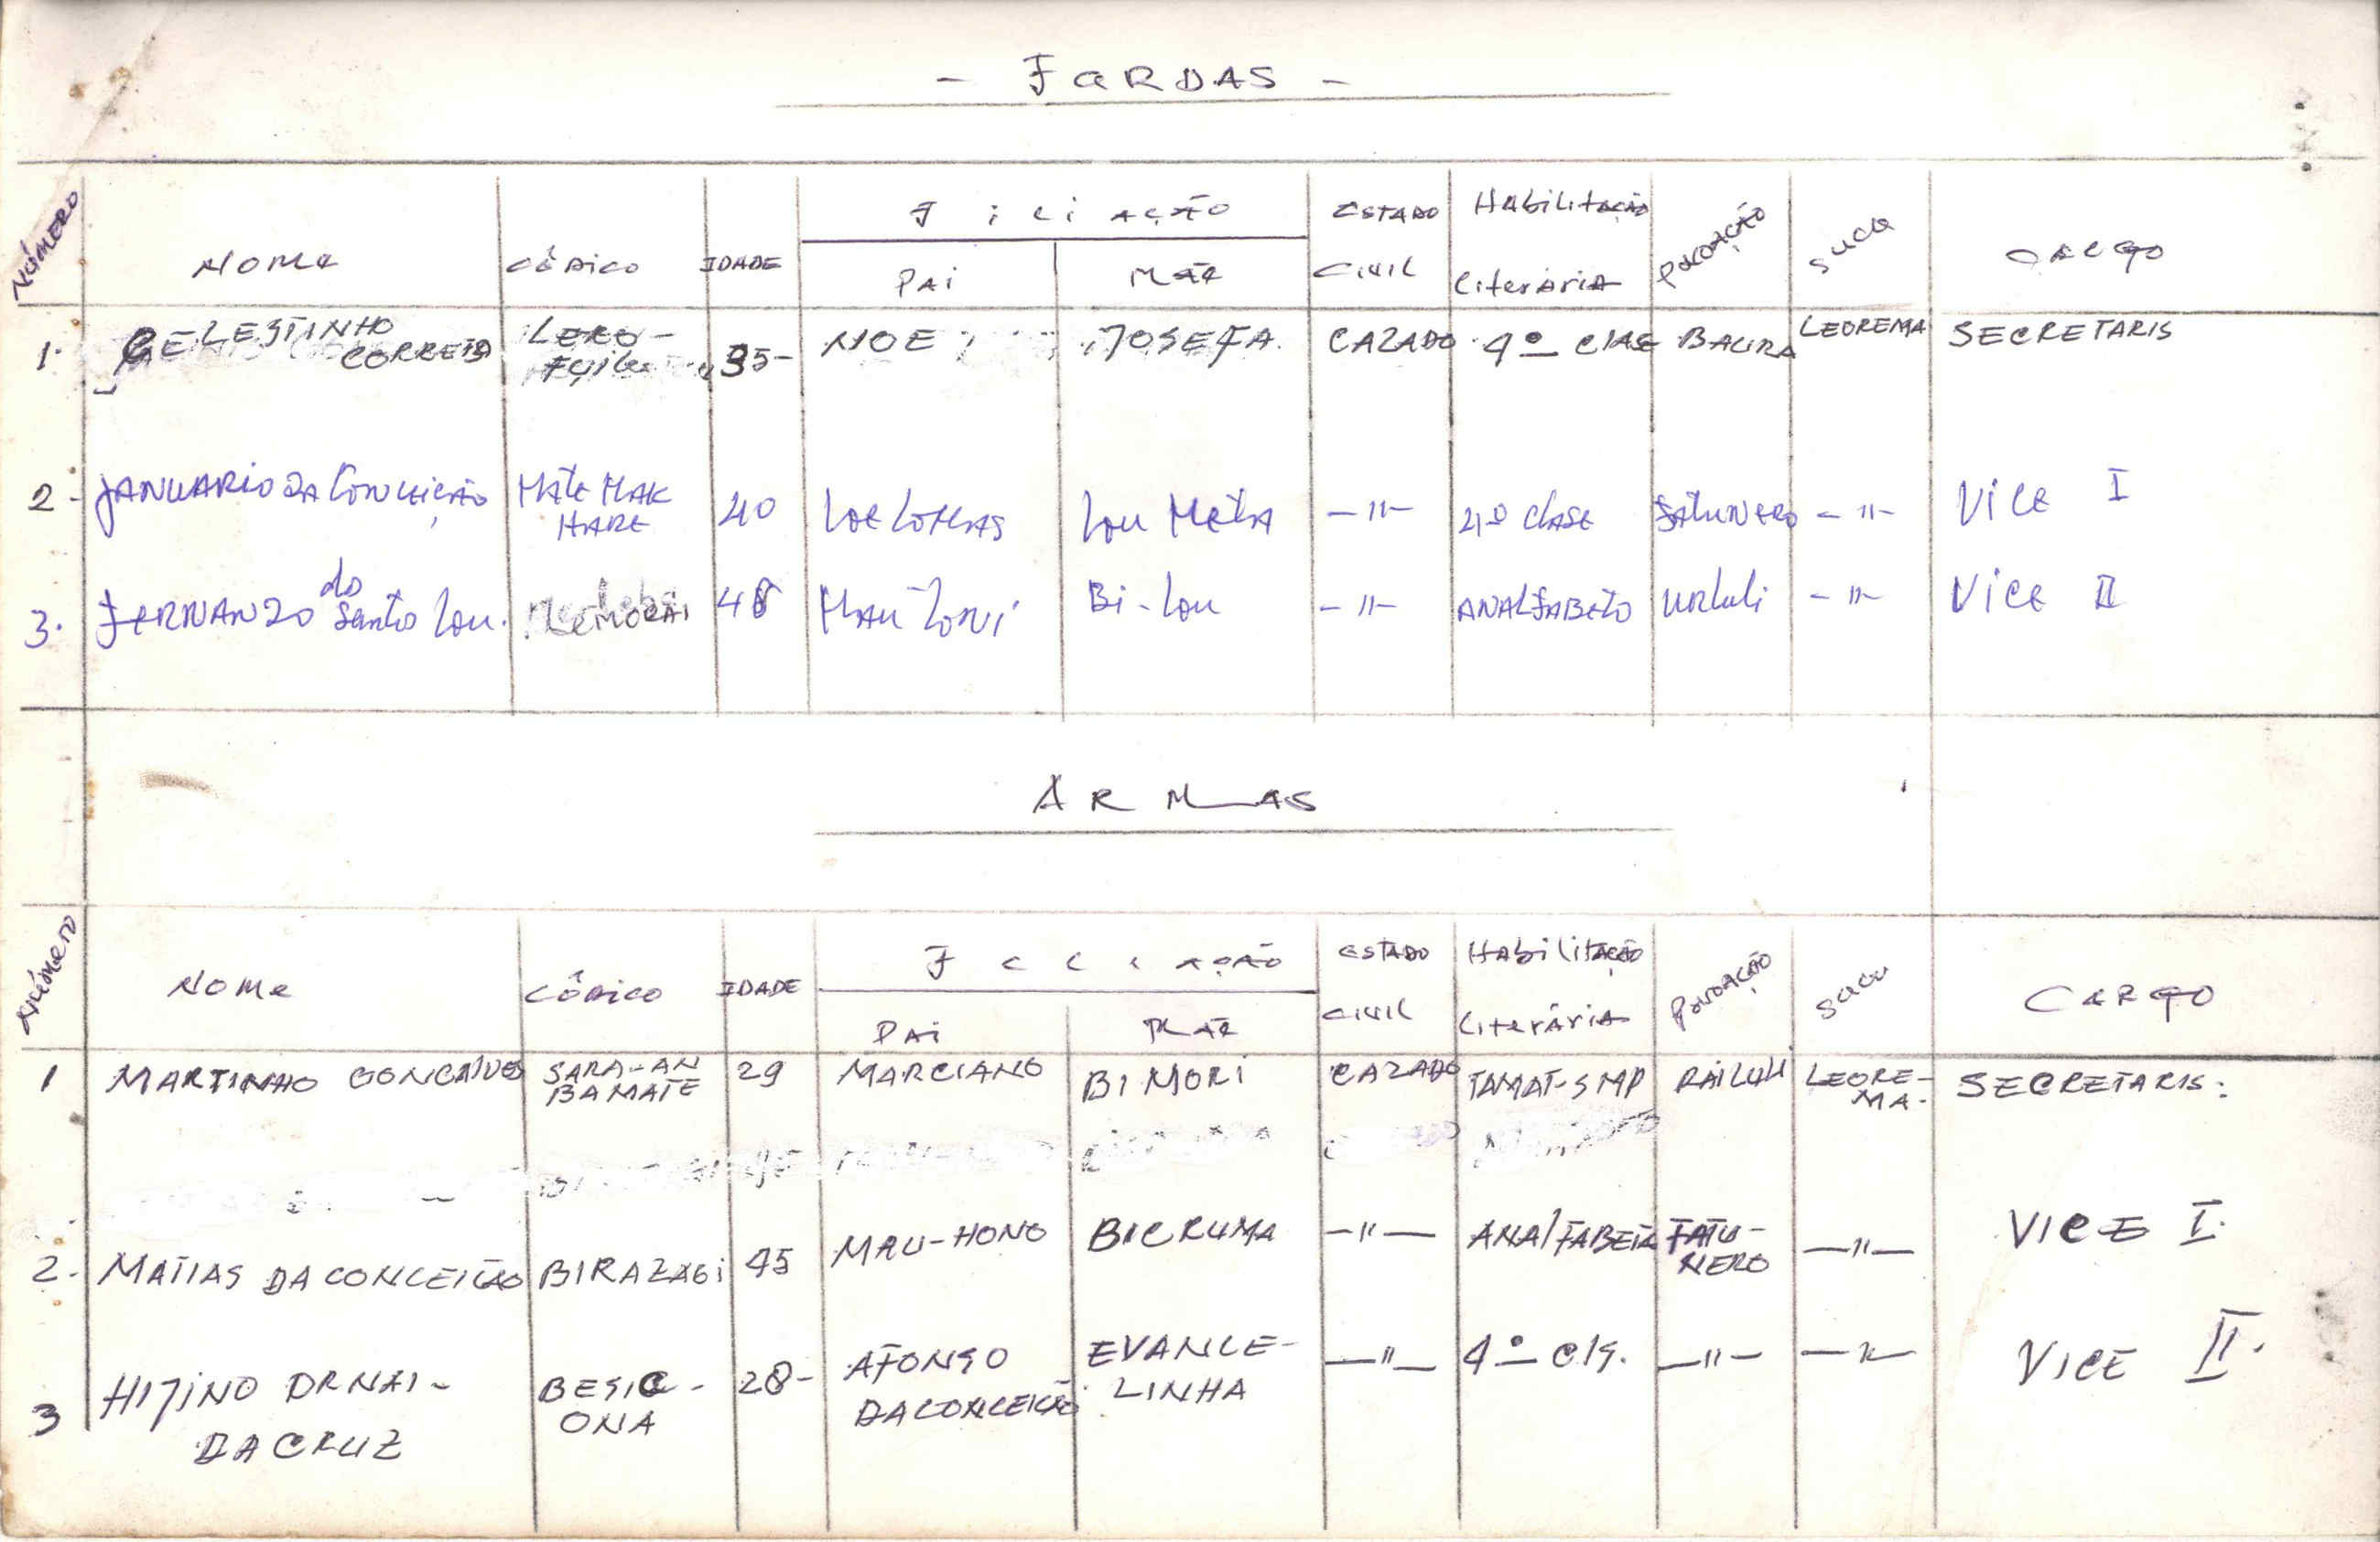 - FARDAS -
Número Nome Códico IDADE Filiação Estado Civil Habilitação Literária Povoação Suca Cargo
Pai Mãe
1. CELESTINHO CORREIA LERO- 35- NOE JOSEFA. CAZADO 4º clase BAURA LEOREMA SECRETARIS
2- JANUARIO DA CONCEIÇÃO MATE MAK HARE 40 LOE LOMAS Lou META -"- 4º clase FATUNERO -"- Vice I
3. FERNANDO do Santo Lou. 48 MAU LORI Bi-Lou -"- ANALFABETO Urluli -"- Vice II
ARMAS
Número Nome Códico IDADE Filiação Estado Civil Habilitação Literária Povoação Sucu CARGO
Pai Mãe
1 MARTINHO GONCALVES SARA-AN BAMATE 29 MARCIANO BI MORI CAZADO TAMAT-SMP RAILULI LEORE-MA. SECRETARIS:
2. MATIAS DA CONCEICÃO BIRAZAGi 45 MAU-HONO BICRUMA -"- ANALFABETA FATU-NERO -"- VICE I.
3 HIJINO ORNAI-DA CRUZ BESIC-ONA 28- AFONSO DA CONCEICÃO EVANLE-LINHA -"- 4º cls. -"- -"- VICE II.